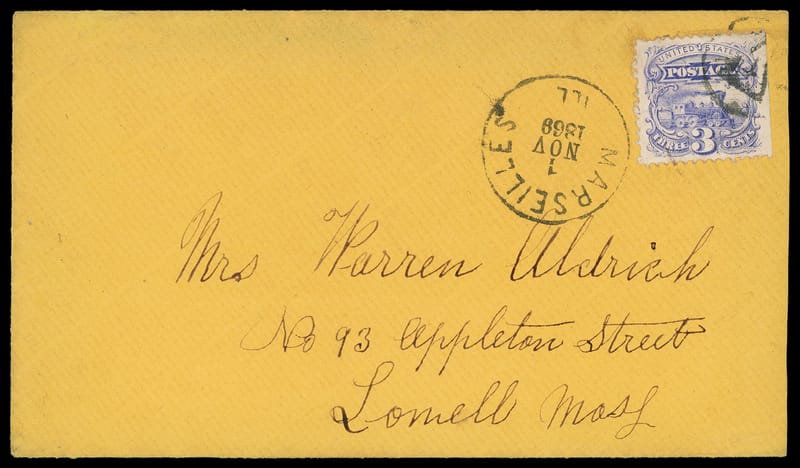 UNITED STATES
POSTAGE
THREE 3 CENTS
MARSEILLES ILL
1
NOV
1869
Mrs Warren Aldrich
No 93 Appleton Street
Lowell Mass